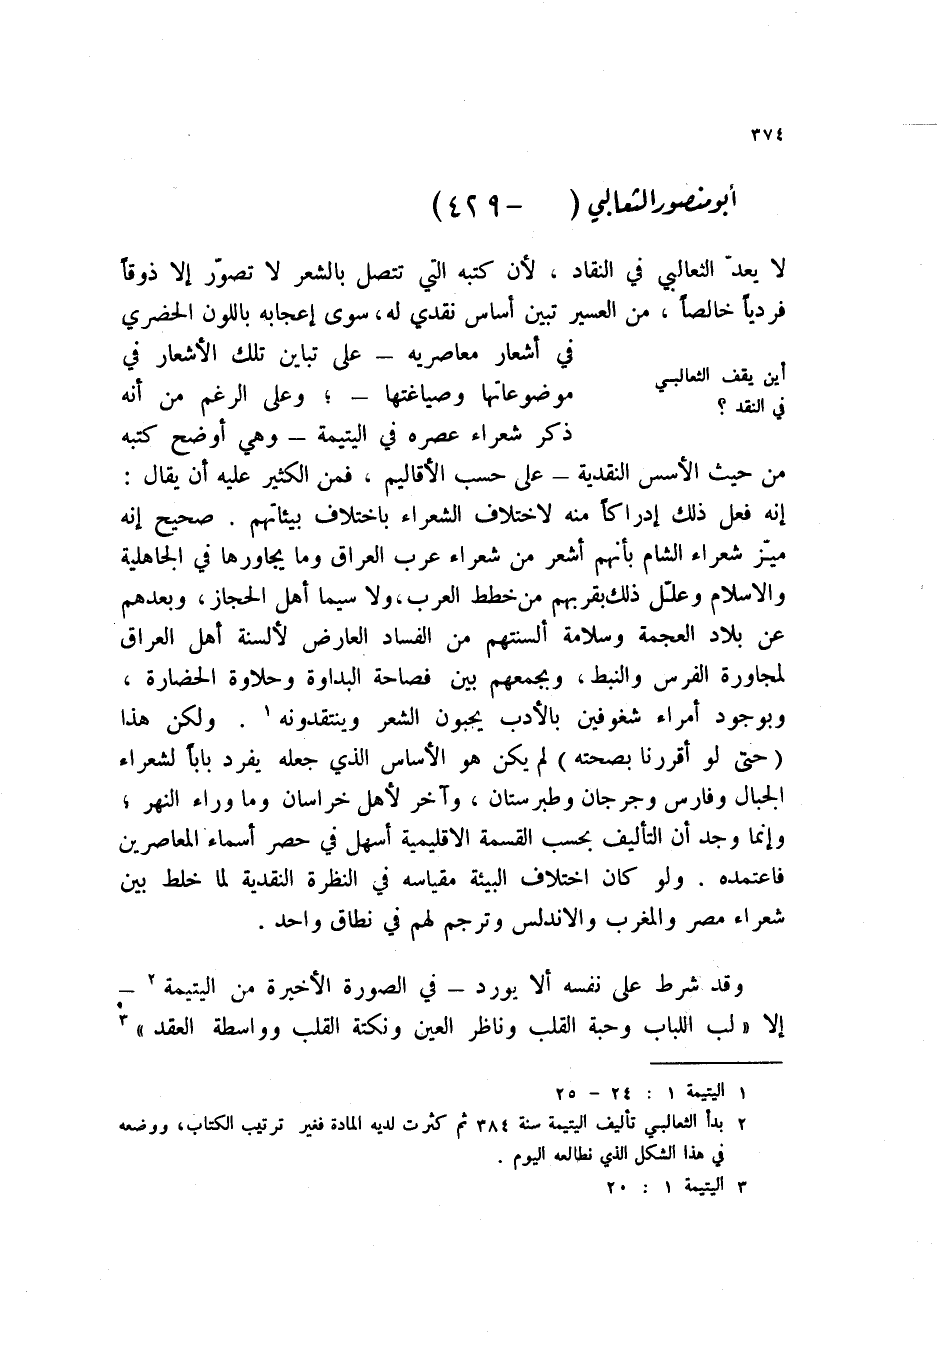 ٣٧٤
أبو منصور الثعالبي ( - ٤٢٩)
لا يعدّ الثعالبي في النقاد ، لأن كتبه التي تتصل بالشعر لا تصوّر إلا ذوقاً
فردياً خالصاً ، من العسير تبين أساس نقدي له ، سوى إعجابه باللون الحضري
في أشعار معاصريه – على تباين تلك الأشعار في
أين يقف الثعالبي
في النقد ؟
موضوعاتها وصياغتها – ؛ وعلى الرغم من أنه
ذكر شعراء عصره في اليتيمة – وهي أوضح كتبه
من حيث الأسس النقدية – على حسب الأقاليم ، فمن الكثير عليه أن يقال :
إنه فعل ذلك إدراكاً منه لاختلاف الشعراء باختلاف بيئاتهم . صحيح إنه
ميّز شعراء الشام بأنهم أشعر من شعراء عرب العراق وما يجاورها في الجاهلية
والاسلام وعلّل ذلك بقربهم من خطط العرب ، ولا سيما أهل الحجاز ، وبعدهم
عن بلاد العجمة وسلامة ألسنتهم من الفساد العارض لألسنة أهل العراق
لمجاورة الفرس والنبط ، وبجمعهم بين فصاحة البداوة وحلاوة الحضارة ،
وبوجود أمراء شغوفين بالأدب يحبون الشعر وينتقدونه ١ . ولكن هذا
( حتى لو أقررنا بصحته ) لم يكن هو الأساس الذي جعله يفرد باباً لشعراء
الجبال وفارس وجرجان وطبرستان ، وآخر لأهل خراسان وما وراء النهر ؛
وإنما وجد أن التأليف بحسب القسمة الاقليمية أسهل في حصر أسماء المعاصرين
فاعتمده . ولو كان اختلاف البيئة مقياسه في النظرة النقدية لما خلط بين
شعراء مصر والمغرب والاندلس وترجم لهم في نطاق واحد .
وقد شرط على نفسه ألا يورد – في الصورة الأخيرة من اليتيمة ٢ –
إلا « لب اللباب وحبة القلب وناظر العين ونكتة القلب وواسطة العقد » ٣
١ اليتيمة ١ : ٢٤ – ٢٥
٢ بدأ الثعالبي تأليف اليتيمة سنة ٣٨٤ ثم كثرت لديه المادة فغير ترتيب الكتاب ، ووضعه
في هذا الشكل الذي نطالعه اليوم .
٣ اليتيمة ١ : ٢٠